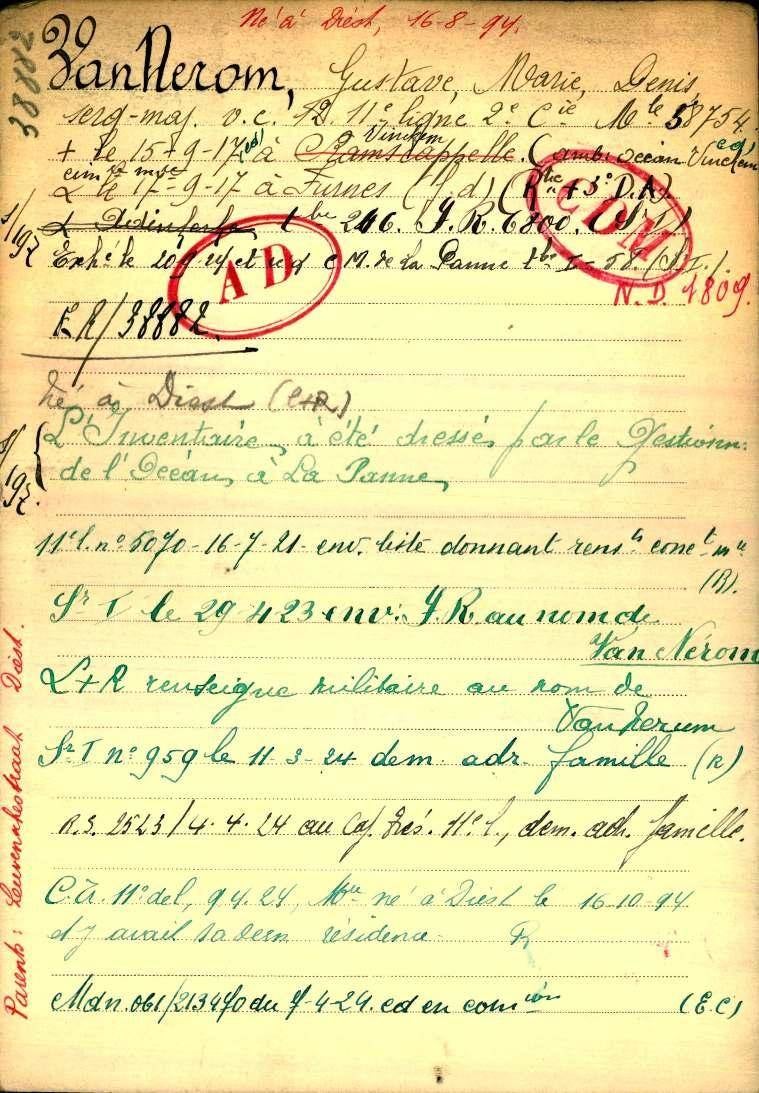 Né à Diest, 16-8-94.
38882
Van Nerom, Gustave, Marie, Denis,
serg-maj. v.c. 12. 11e ligne 2e Cie Mle 58754.
+ le 15-9-17 (cd) à Ramscappelle Vinckem (amb. océan Vinckem cd)
cim re mre
L le 17-9-17 à Furnes (f.d) (Rlie + 3e D.A)
s/197
à Adinkerke, tbe 246. J.R. 6800. (Sr T)
Exh. le 20 24 et red CM. de La Panne tbe I-58. (S.T.).
A D
CDM
N.D. 1809.
E.R/38882.
né à Diest (L+R)
s/197.
L'Inventaire, a été dressé, par le Gestionn:
de l'Océan, à La Panne,
11e l. no 5070-16-7-21- env. liste donnant rensts conct mre
(R).
Sr T le 29 4 23 env. J.R. au nom de
Van Nérom
L+R renseigne militaire au nom de
Van Nerum
Sr T no 959 le 11-3-24 dem. adr. famille (R)
R.S. 2523/4.4.24 au Caf. Trés. 11e l., dem. adr. famille.
C.Tr. 11e del, 9 4.24, Mre né à Diest le 16-10-94
et y avait sa dern résidence R
Mdn. 061/213470 du 7-4-24. cd en comion (E.C)
Parents: Leuvenschestraat Diest.